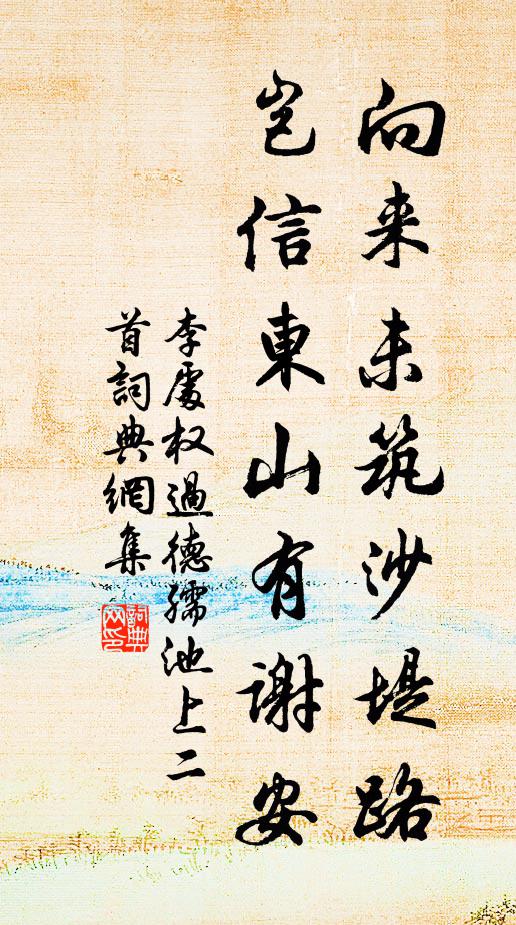 向来未筑沙堤路
岂信東山有謝安
李處权過德孺池上二
首詞典網集
詞典
网印